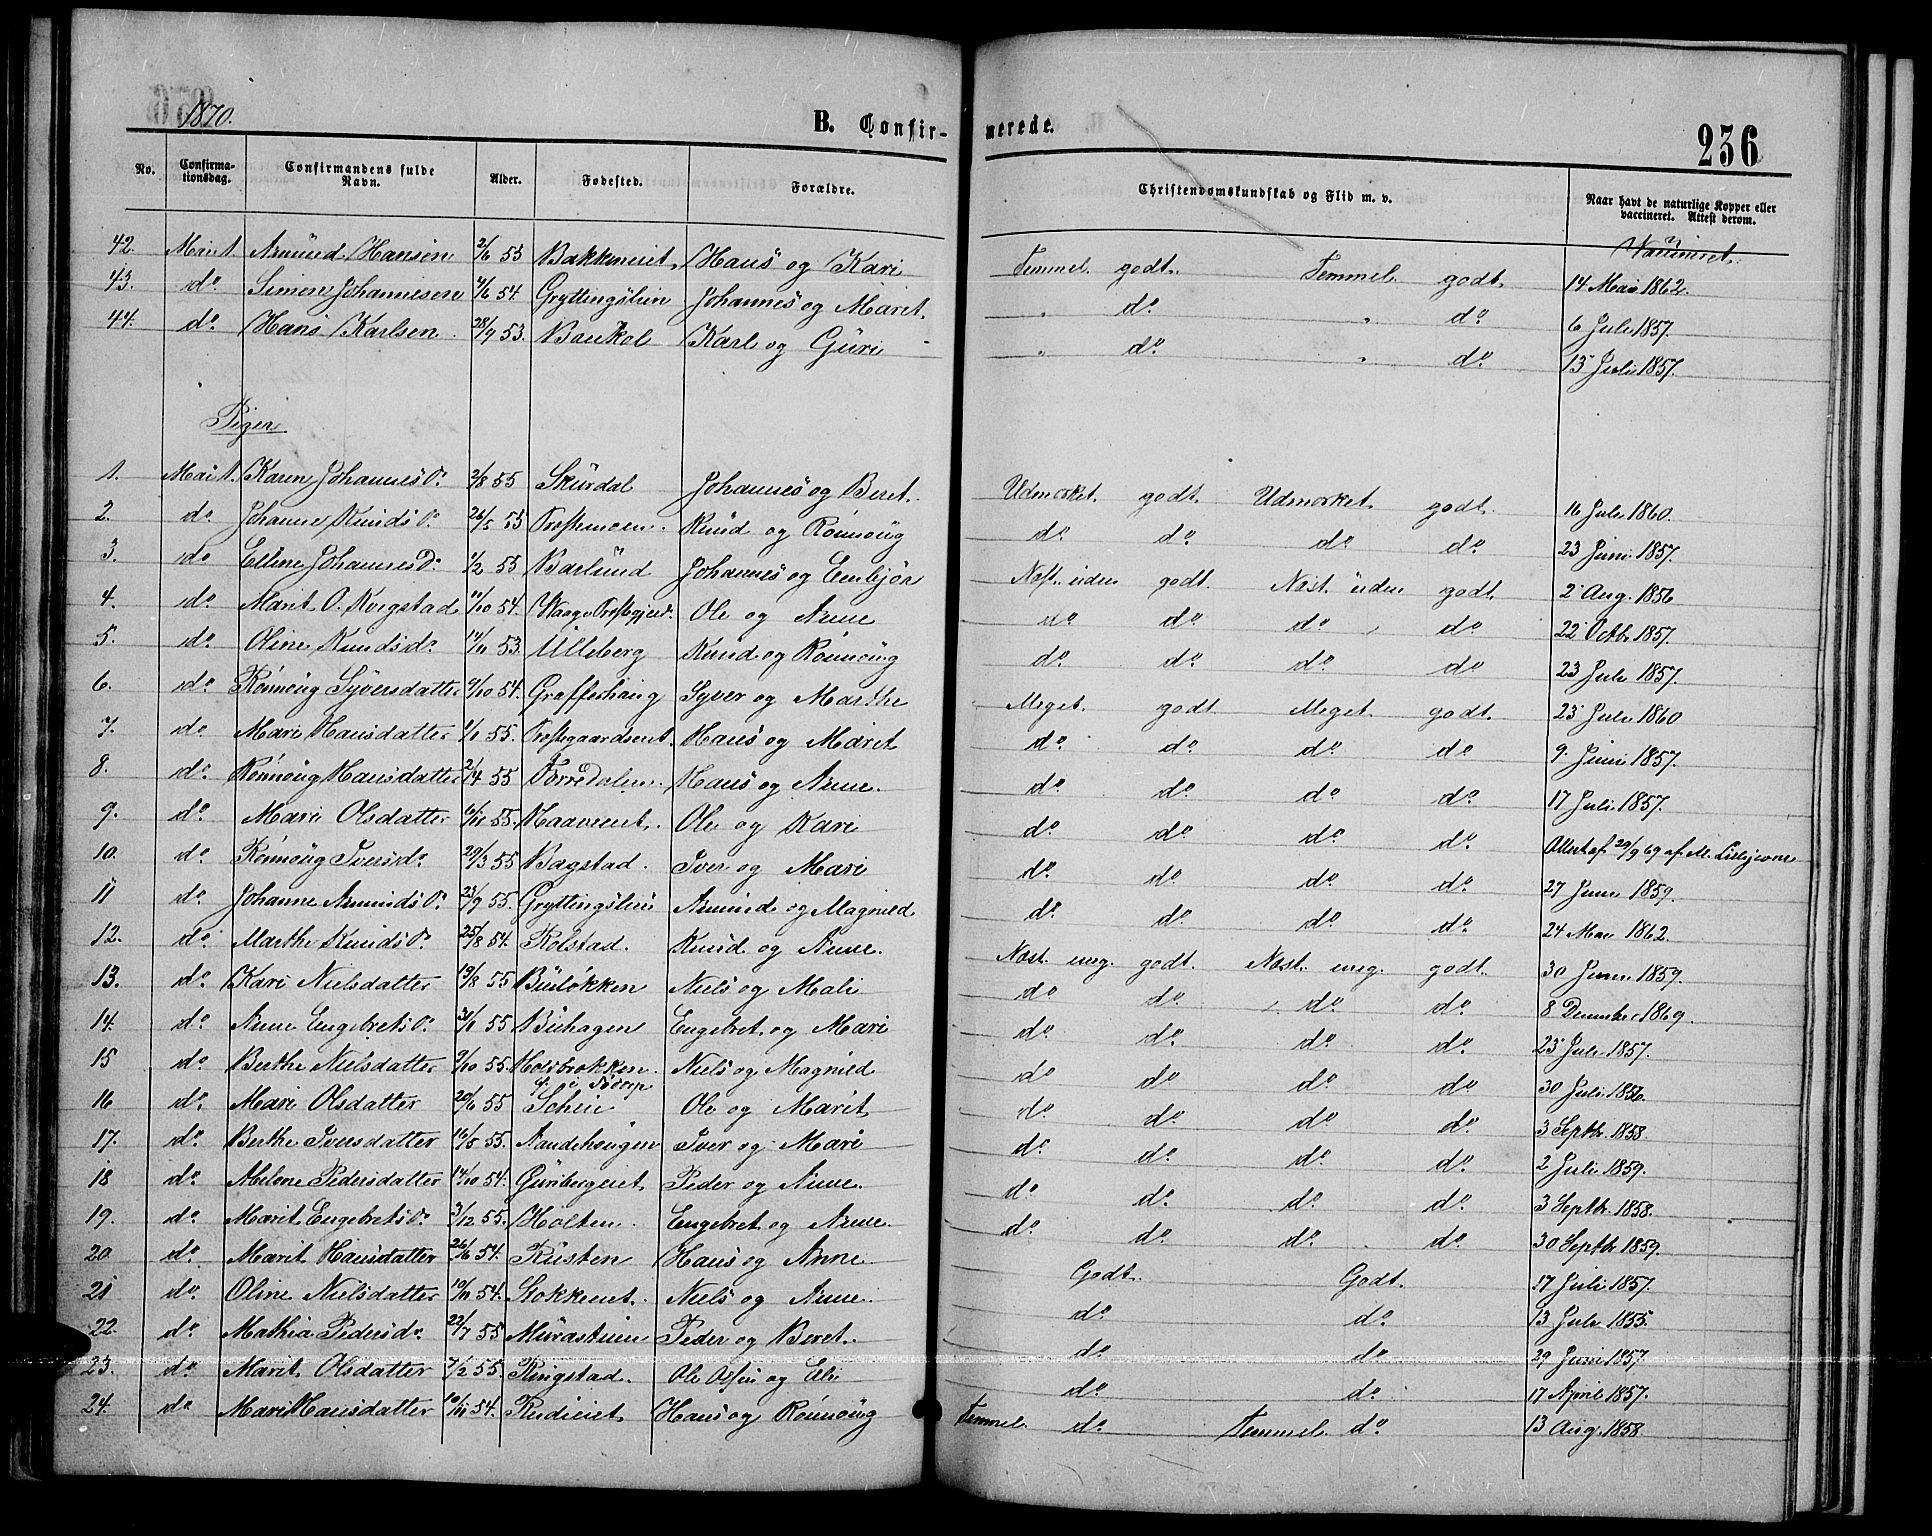 1870.
B. Confir-
merede.
236
No.
Confirma-
tionsdag.
Confirmandens fulde
Navn.
Alder.
Fødested.
Forældre.
Christendomskundskab og Flid m. v.
Naar havt de naturlige Kopper eller
vaccineret. Attest derom.
Vaccineret.
42. Mai 1. Amund Hansen 2/6 53 Bakkeneiet Hans og Kari Temmel. godt. Temmel. godt. 14 Mai 1862.
43. do Simen Johannesen 4/6 54. Gryttingslien Johannes og Marit. " do " do 6 Juli 1857.
44. do Hans Karlsen 28/9 53. Baukol Karl og Guri " do " do 15 Juli 1857.
Piger
1. Mai 1. Karen Johannesd. 2/8 55 Skurdal Johannes og Beret. Udmærket godt. Udmærket godt. 16 Juli 1860.
2. do Johanne Knudsd. 26/5 53 Knud og Rönnoug do do do do 23 Juni 1857.
3. do Eline Johannesd. 1/2 55 Barlund Johannes og Embjør Næst. uden godt. Næst. uden godt. 2 Aug. 1856
4. do Marit O. Kvigstad 11/10 54. Ole og Anne do do do do 22 Octbr. 1857.
5. do Oline Knudsd. 14/11 53. Ulleberg Knud og Rönnoug do do do do 23 Juli 1857.
6. do Rönnoug Syversdatter 9/10 54. Grafferhaug Syver og Marthe Meget. godt Meget. godt. 25 Juli 1860
7. do Mari Hansdatter 1/1 55. Hans og Marit do do do do 9 Juni 1857.
8. do Rönnoug Hansdatter 2/4 55 Forredalen Hans og Anne. do do do do 17 Juli 1857.
9. do Mari Olsdatter 6/11 55. Haaveeiet. Ole og Kari do do do do Attest af 29/9 69 af
10. do Rönnoug Iversd. 29/3 55 Bagstad. Iver og Mari do do do do 27 Juni 1859.
11 do Johanne Amundsd. 23/9 55. Gryttingslien Amund og Magnild do do do do 24 Mai 1862.
12. do Marthe Knudsd. 25/8 54. Kolstad. Knud og Anne. Næst. meg. godt. Næst. meg. godt. 30 Juni 1859.
13. do Kari Nielsdatter 19/8 55 Buløkken Niels og Mali do do do do 8 December 1869.
14. do Anne Engebretsd. 31/1 55 Buhagen Engebret og Mari do do do do 25 Juli 1857.
15 do Berthe Nielsdatter 9/10 55. Niels og Magnild do do do do 30 Juli 1856.
16 do Mari Olsdatter 20/6 55 Ole og Marit do do do do 3 Septbr. 1858.
17. do Berthe Iversdatter 16/5 55. Aandehougen Iver og Mari do do do do 2 Juli 1859.
18 do Abelone Pedersdatter 14/10 54. Guribergeiet Peder og Anne. do do do do 3 Septbr. 1858.
19. do Marit Engebretsd. 3/12 55. Holten Engebret og Anne. do do do do 30 Septbr 1859.
20. do Marit Hansdatter 26/6 54. Rusten Hans og Anne. Godt. Godt. 17 Juli 1857.
21 do Oline Nielsdatter 10/11 54. Stokkeeiet. Niels og Anne. do do 13 Juli 1855.
22. do Mathia Pedersd. 22/7 55 Murastuen Peder og Beret. do do 29 Juni 1857.
23. do Marit Olsdatter 7/2 55. Ringstad. Ole og Eli do do 17 April 1857.
24. do Mari Hansdatter 10/11 54. Rudieiet Hans og Rönnoug Temmel. do Temmel. do 13 Aug. 1858.